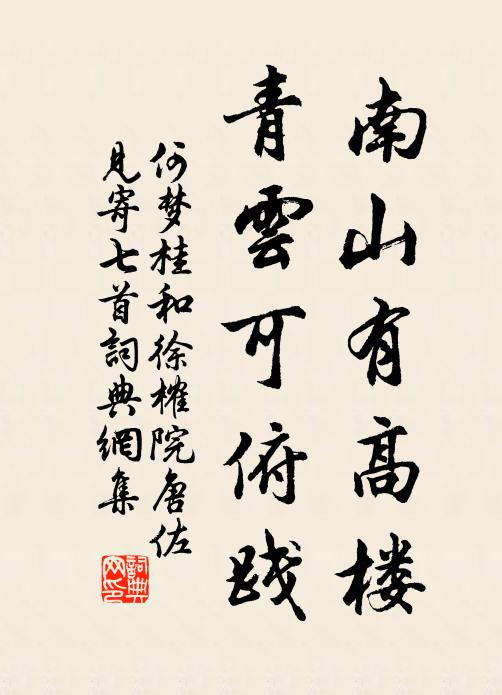 南山有高楼
青雲可俯践
何梦桂和徐榷院唐佐
見寄七首詞典網集
詞典网印